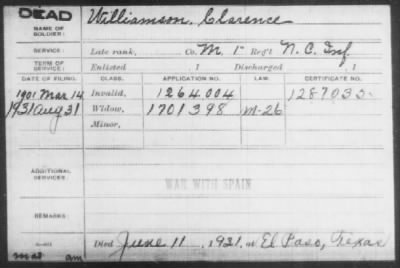 DEAD
NAME OF SOLDIER: Williamson, Clarence
SERVICE: Late rank, Co. M 1 Reg't N.C. Inf.
TERM OF SERVICE: Enlisted , 1 Discharged , 1
DATE OF FILING. CLASS. APPLICATION NO. LAW. CERTIFICATE NO.
1901 Mar 14 Invalid, 1264.004 1287033
1931 Aug 31 Widow, 1701398 M-26
Minor,
ADDITIONAL SERVICES:
WAR WITH SPAIN
REMARKS:
Died June 11, 1921, at El Paso, Texas